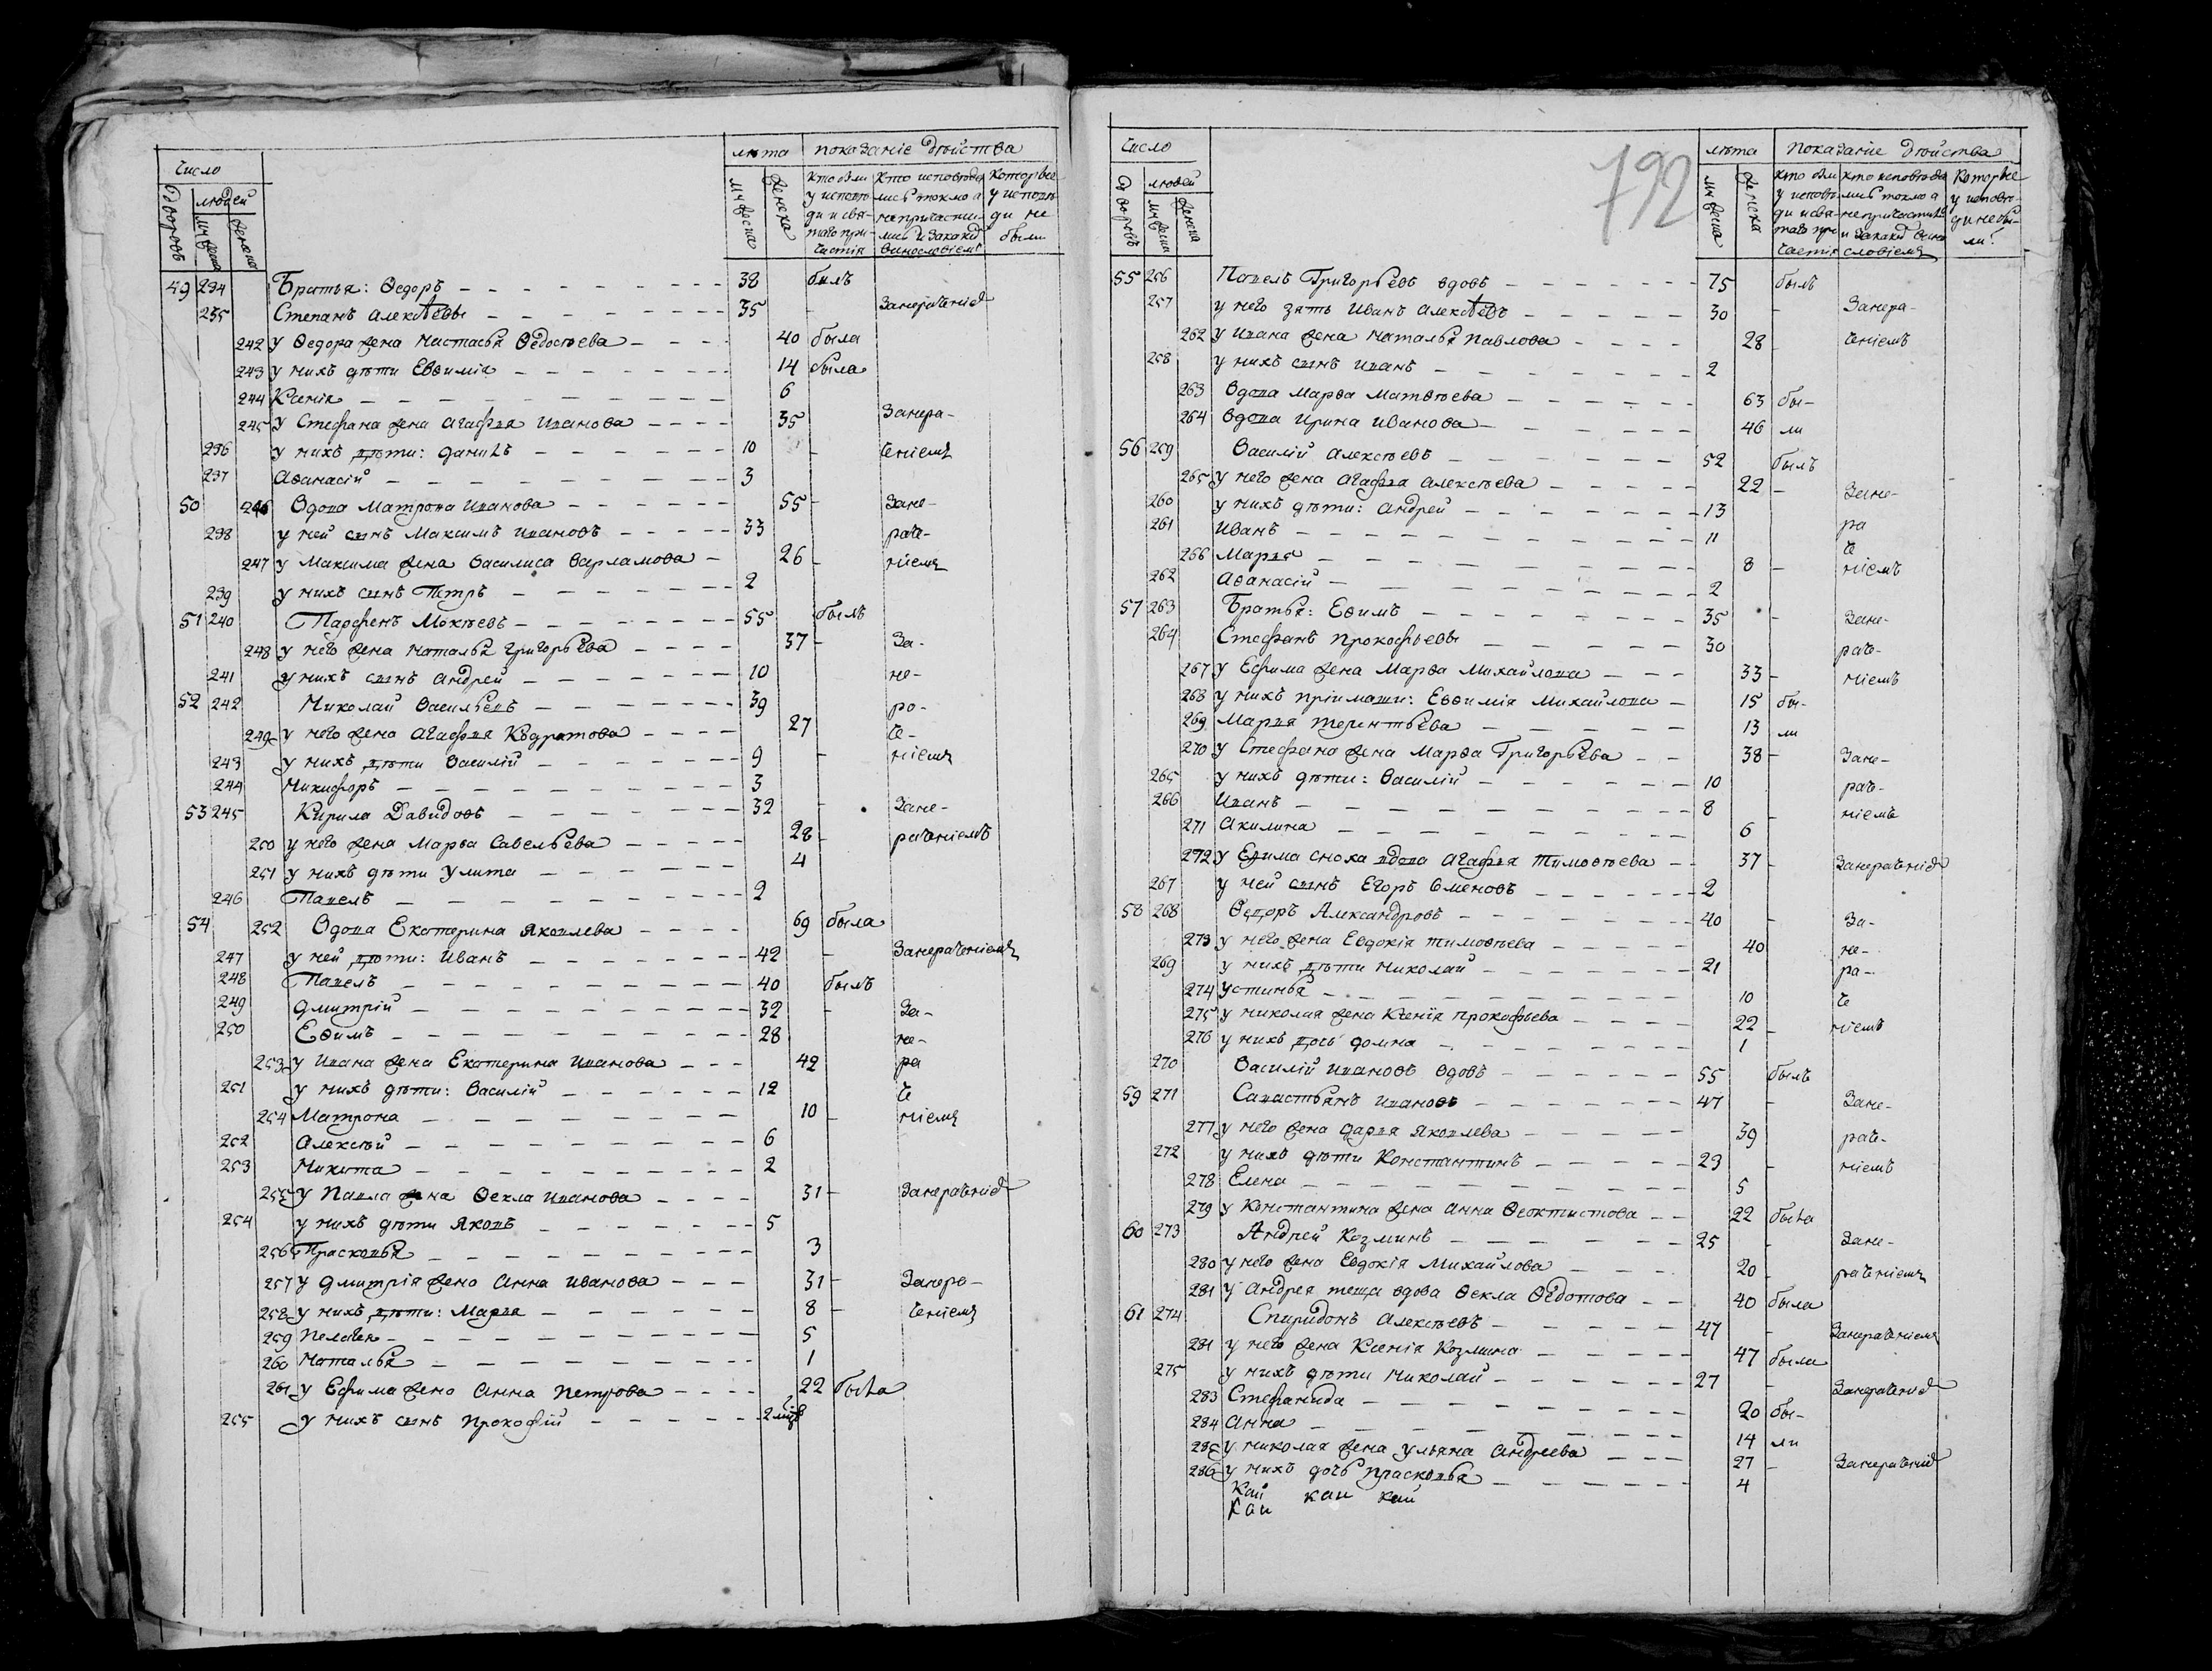 Число
лѣта показаніе дѣйства
дворовъ
людей
мужеска
женска
мужеска
женска
кто были у исповѣди и святаго причастія
кто исповѣдались токмо а не причастились и за какимъ винословіемъ
которые у исповѣди не были
49 234 Братья: Ѳедоръ 38 былъ
235 Степанъ Алексѣевы 35 - Занераченіе
242 у Ѳедора жена Настасья Ѳедосѣева 40 была
243 у нихъ дѣти Евѳимія 14 была
244 Ксенія 6
245 у Стефана жена Агафья Иванова 35 Занера-
236 у нихъ дѣти: Данилъ 10 - ченіемъ
237 Аѳанасій 3
50 246 Вдова Матрона Иванова 55 - Зане-
238 у ней сынъ Максимъ Ивановъ 33 раче-
247 у Максима жена Василиса Варламова 26 - ніемъ
239 у нихъ сынъ Петръ 2
51 240 Парфенъ Мокѣевъ 55 былъ
248 у него жена Наталья Григорьева 37 - За-
241 у нихъ сынъ Андрей 10 не-
52 242 Николай Васильевъ 39 ра-
249 у него жена Агафья Кодратова 27 че-
243 у нихъ дѣти Василій 9 - ніемъ
244 Никифоръ 3
53 245 Кирила Давидовъ 32 - Зане-
250 у него жена Марѳа Савельева 28 - раченіемъ
251 у нихъ дѣти Улита 4
246 Павелъ 2
54 252 Вдова Екатерина Яковлева 69 была
247 у ней дѣти: Иванъ 42 - Занераченіемъ
248 Павелъ 40 былъ
249 Дмитрій 32 - За-
250 Еѳимъ 28 не-
253 у Ивана жена Екатерина Иванова 42 ра
251 у нихъ дѣти: Василій 12 че
254 Матрона 10 - ніемъ
252 Алексѣй 6
253 Никита 2
255 у Павла жена Ѳекла Иванова 31 - Занераченіе
254 у нихъ дѣти Яковъ 5
256 Прасковья 3
257 у Дмитрія жена Анна Иванова 31 - Занера-
258 у нихъ дѣти: Марья 8 - ченіемъ
259 Пелагея 5
260 Наталья 1
261 у Ефима жена Анна Петрова 22 была
255 у нихъ сынъ Прокофій 2
792
Число
лѣта показаніе дѣйства
дворовъ
людей
мужеска
женска
мужеска
женска
кто были у исповѣди и святаго причастія
кто исповѣдались токмо а не причастились и за какимъ винословіемъ
Которые у исповѣди не были.
55 256 Павелъ Григорьевъ вдовъ 75 былъ
257 у него зять Иванъ Алексѣевъ 30 - Занера-
262 у Ивана жена Наталья Павлова 28 - ченіемъ
258 у нихъ сынъ Иванъ 2
263 Вдова Марѳа Матвѣева 63 бы-
264 Вдова Ирина Иванова 46 ли
56 259 Василій Алексѣевъ 52 былъ
265 у него жена Агафья Алексѣева 22 - Зане-
260 у нихъ дѣти: Андрей 13 ра
261 Иванъ 11 че
266 Марья 8 - ніемъ
262 Аѳанасій 2
57 263 Братья: Еѳимъ 35 - Зане-
264 Стефанъ Прокофьевы 30 раче-
267 у Ефима жена Марѳа Михайлова 33 - ніемъ
268 у нихъ пріимыши: Евѳимія Михайлова 15 бы-
269 Марья Терентьева 13 ли
270 у Стефана жена Марѳа Григорьева 38 - Зане-
265 у нихъ дѣти: Василій 10 раче-
266 Иванъ 8 - ніемъ
271 Акилина 6
272 у Ефима сноха вдова Агафья Тимоѳѣева 37 - Занераченіе
267 у ней сынъ Егоръ Семеновъ 2
58 268 Ѳедоръ Александровъ 40 - За-
273 у него жена Евдокія Тимоѳѣева 40 не-
269 у нихъ дѣти Николай 21 ра-
274 Устинья 10 че
275 у Николая жена Ксенія Прокофьева 22 - ніемъ
276 у нихъ дочь Домна 1
270 Василій Ивановъ вдовъ 55 былъ
59 271 Савастьянъ Ивановъ 47 - Зане-
277 у него жена Дарья Яковлева 39 раче-
272 у нихъ дѣти Константинъ 23 - ніемъ
278 Елена 5
279 у Константина жена Анна Ѳеоктистова 22 была
60 273 Андрей Козминъ 25 - Зане-
280 у него жена Евдокія Михайлова 20 - раченіемъ
281 у Андрея теща вдова Ѳекла Ѳедотова 40 была
61 274 Спиридонъ Алексѣевъ 47 - Занераченіемъ
281 у него жена Ксенія Козмина 47 была
275 у нихъ дѣти Николай 27 - Занераченіе
283 Стефанида 20 бы-
284 Анна 14 ли
285 у Николая жена Ульяна Андреева 27 - Занераченіе
286 у нихъ дочь Прасковья 4
Кай каи кай
Каи